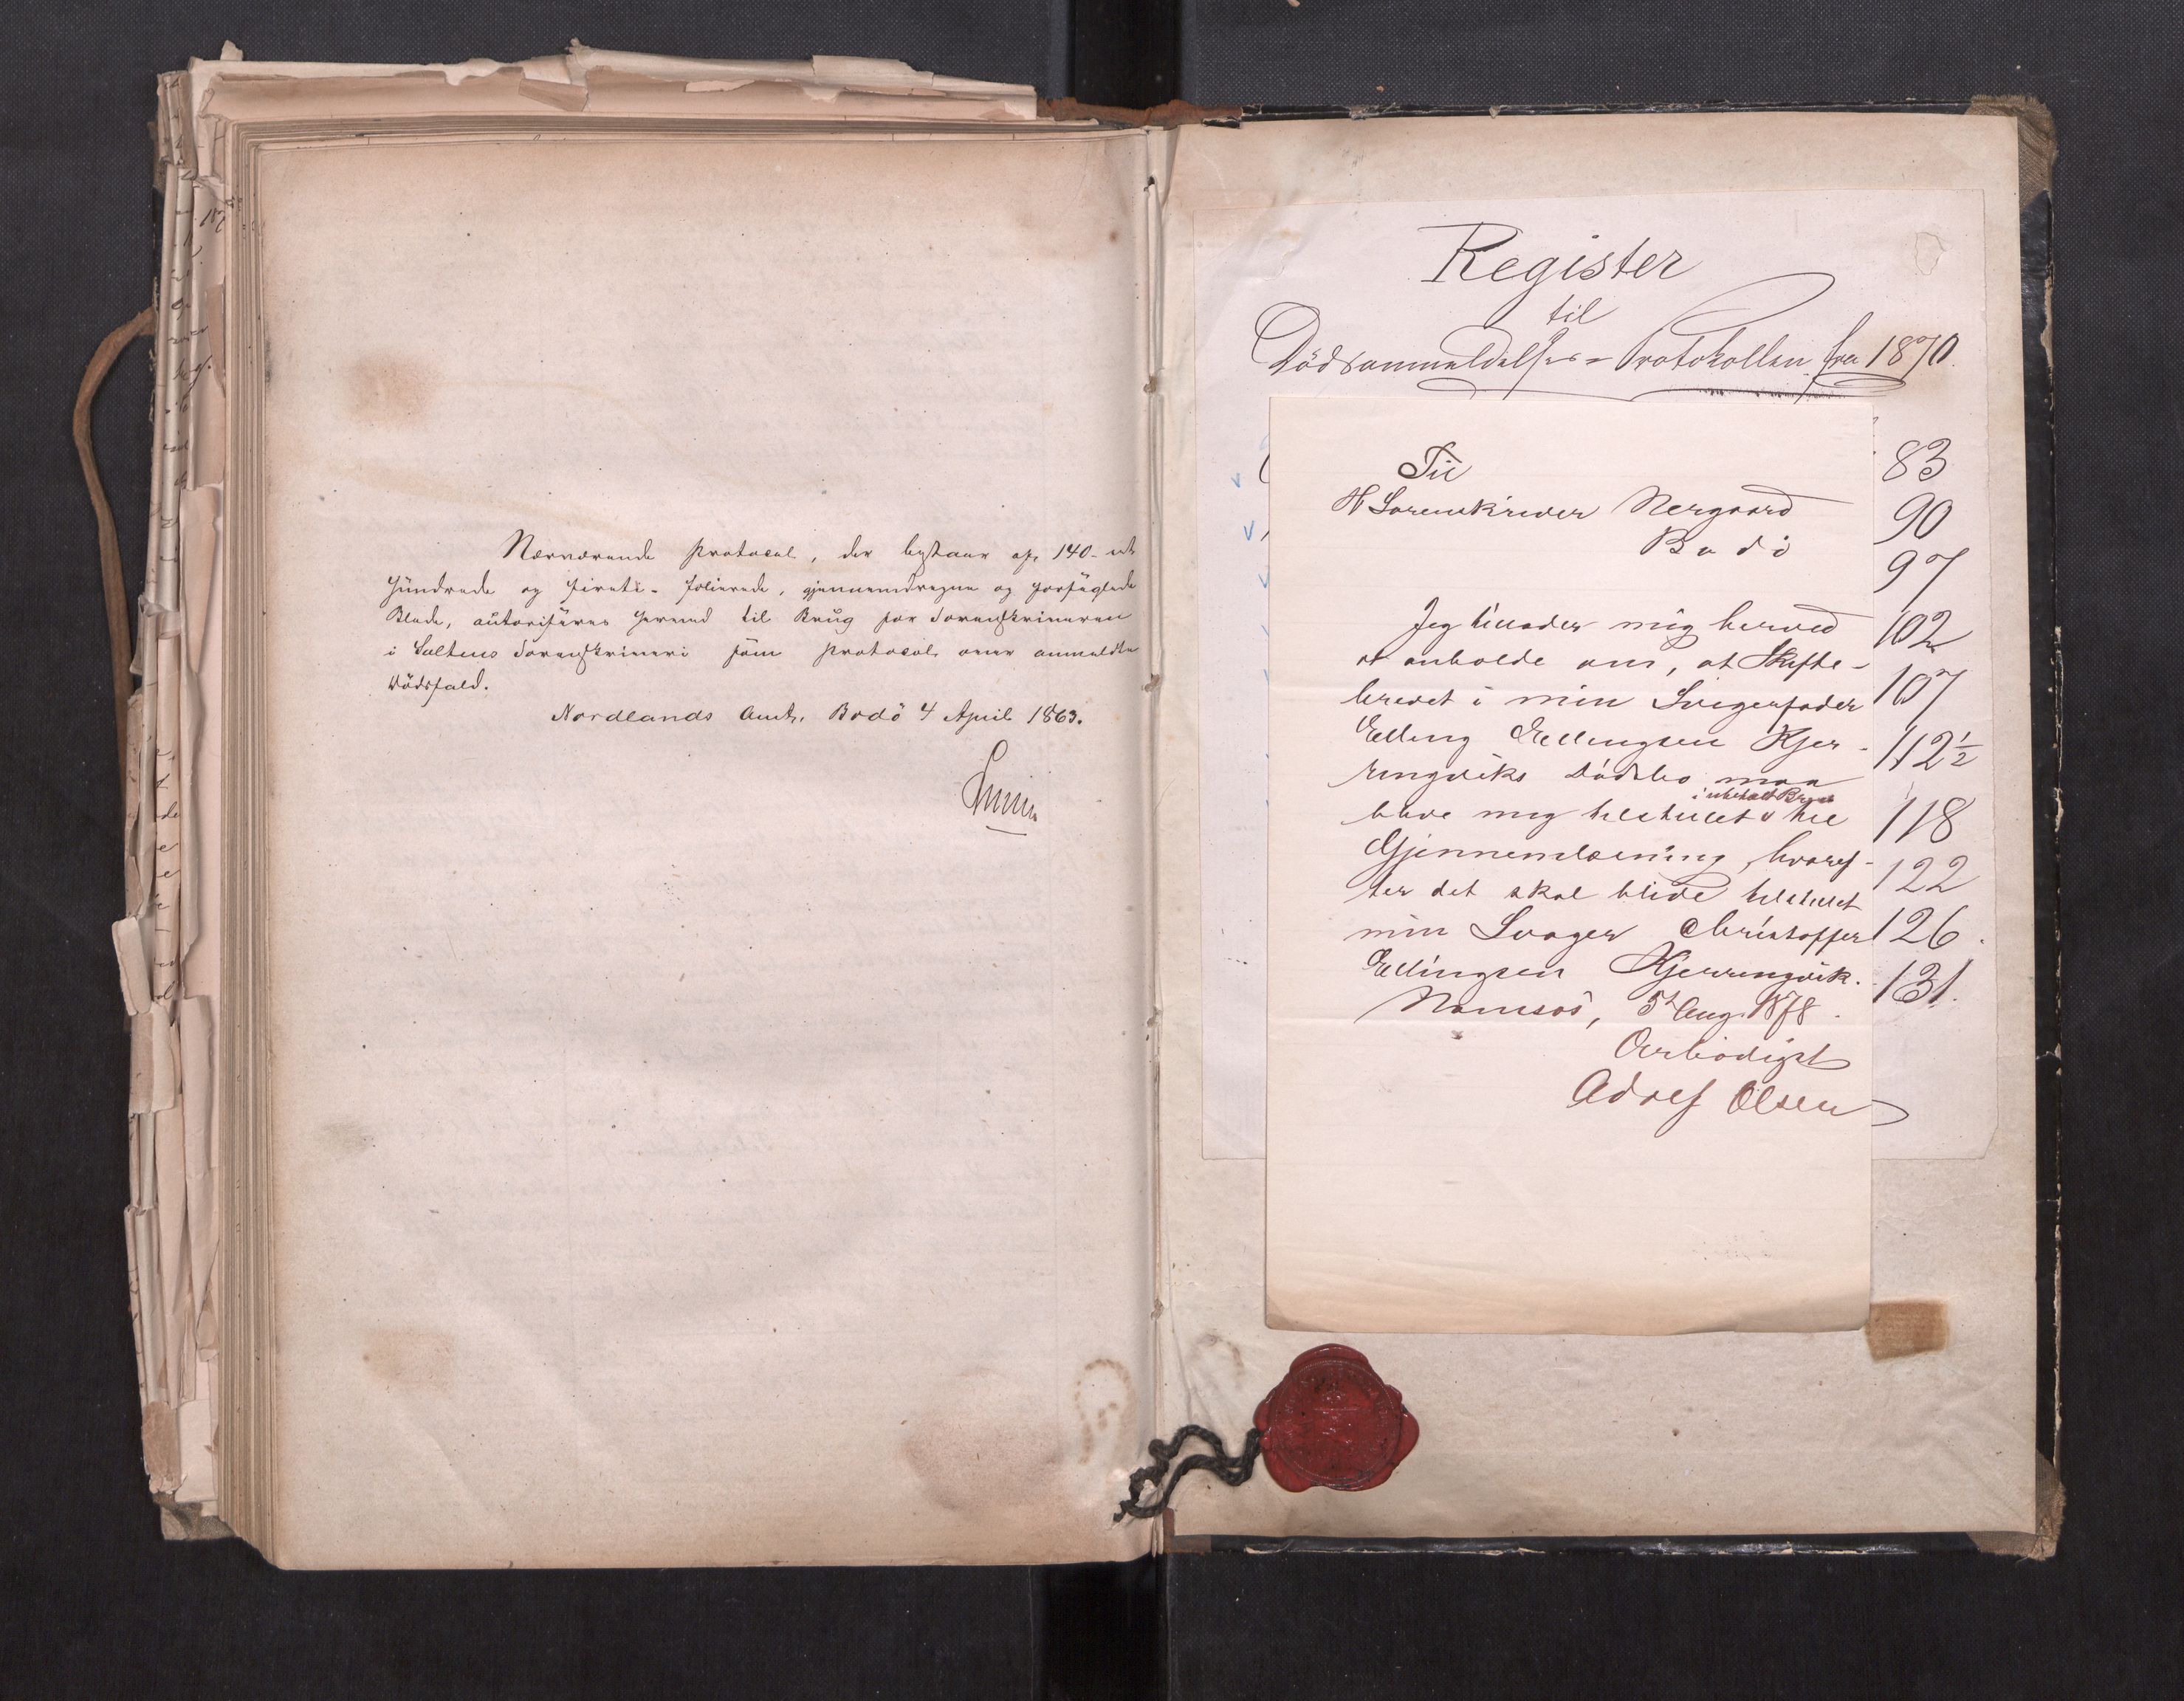 Nærværende Protocol, der bestaar af 140 - et
Hundrede og fireti - folierede, gjennemdragne og forseglede
Blade, autoriseres herved til Brug for Sorenskriveren
i Saltens Sorenskriveri som Protocol over anmeldte
Dödsfald.
Nordlands Amt, Bodö 4 April 1863.
Register
til
Dödsanmeldelses-Protokollen fra 1870.
83
90
97
102
107
112½
118
122
126.
131.
Til
Hr Sorenskriver Nergaard
Bodö
Jeg tillader mig herved
at anholde om, at Skifte-
brevet i min Svigerfader
Elling Ellingsen Kjer-
ringviks Dödsbo maa
blive mig tilstillet i ubetalt Brev til
Gjennemlæsning, hvoref-
ter det skal blive tilstillet
min Svoger Christoffer
Ellingsen Kjerringvik.
Namsos, 5t Aug. 1878.
Ærbödigst
Adolf Olsen